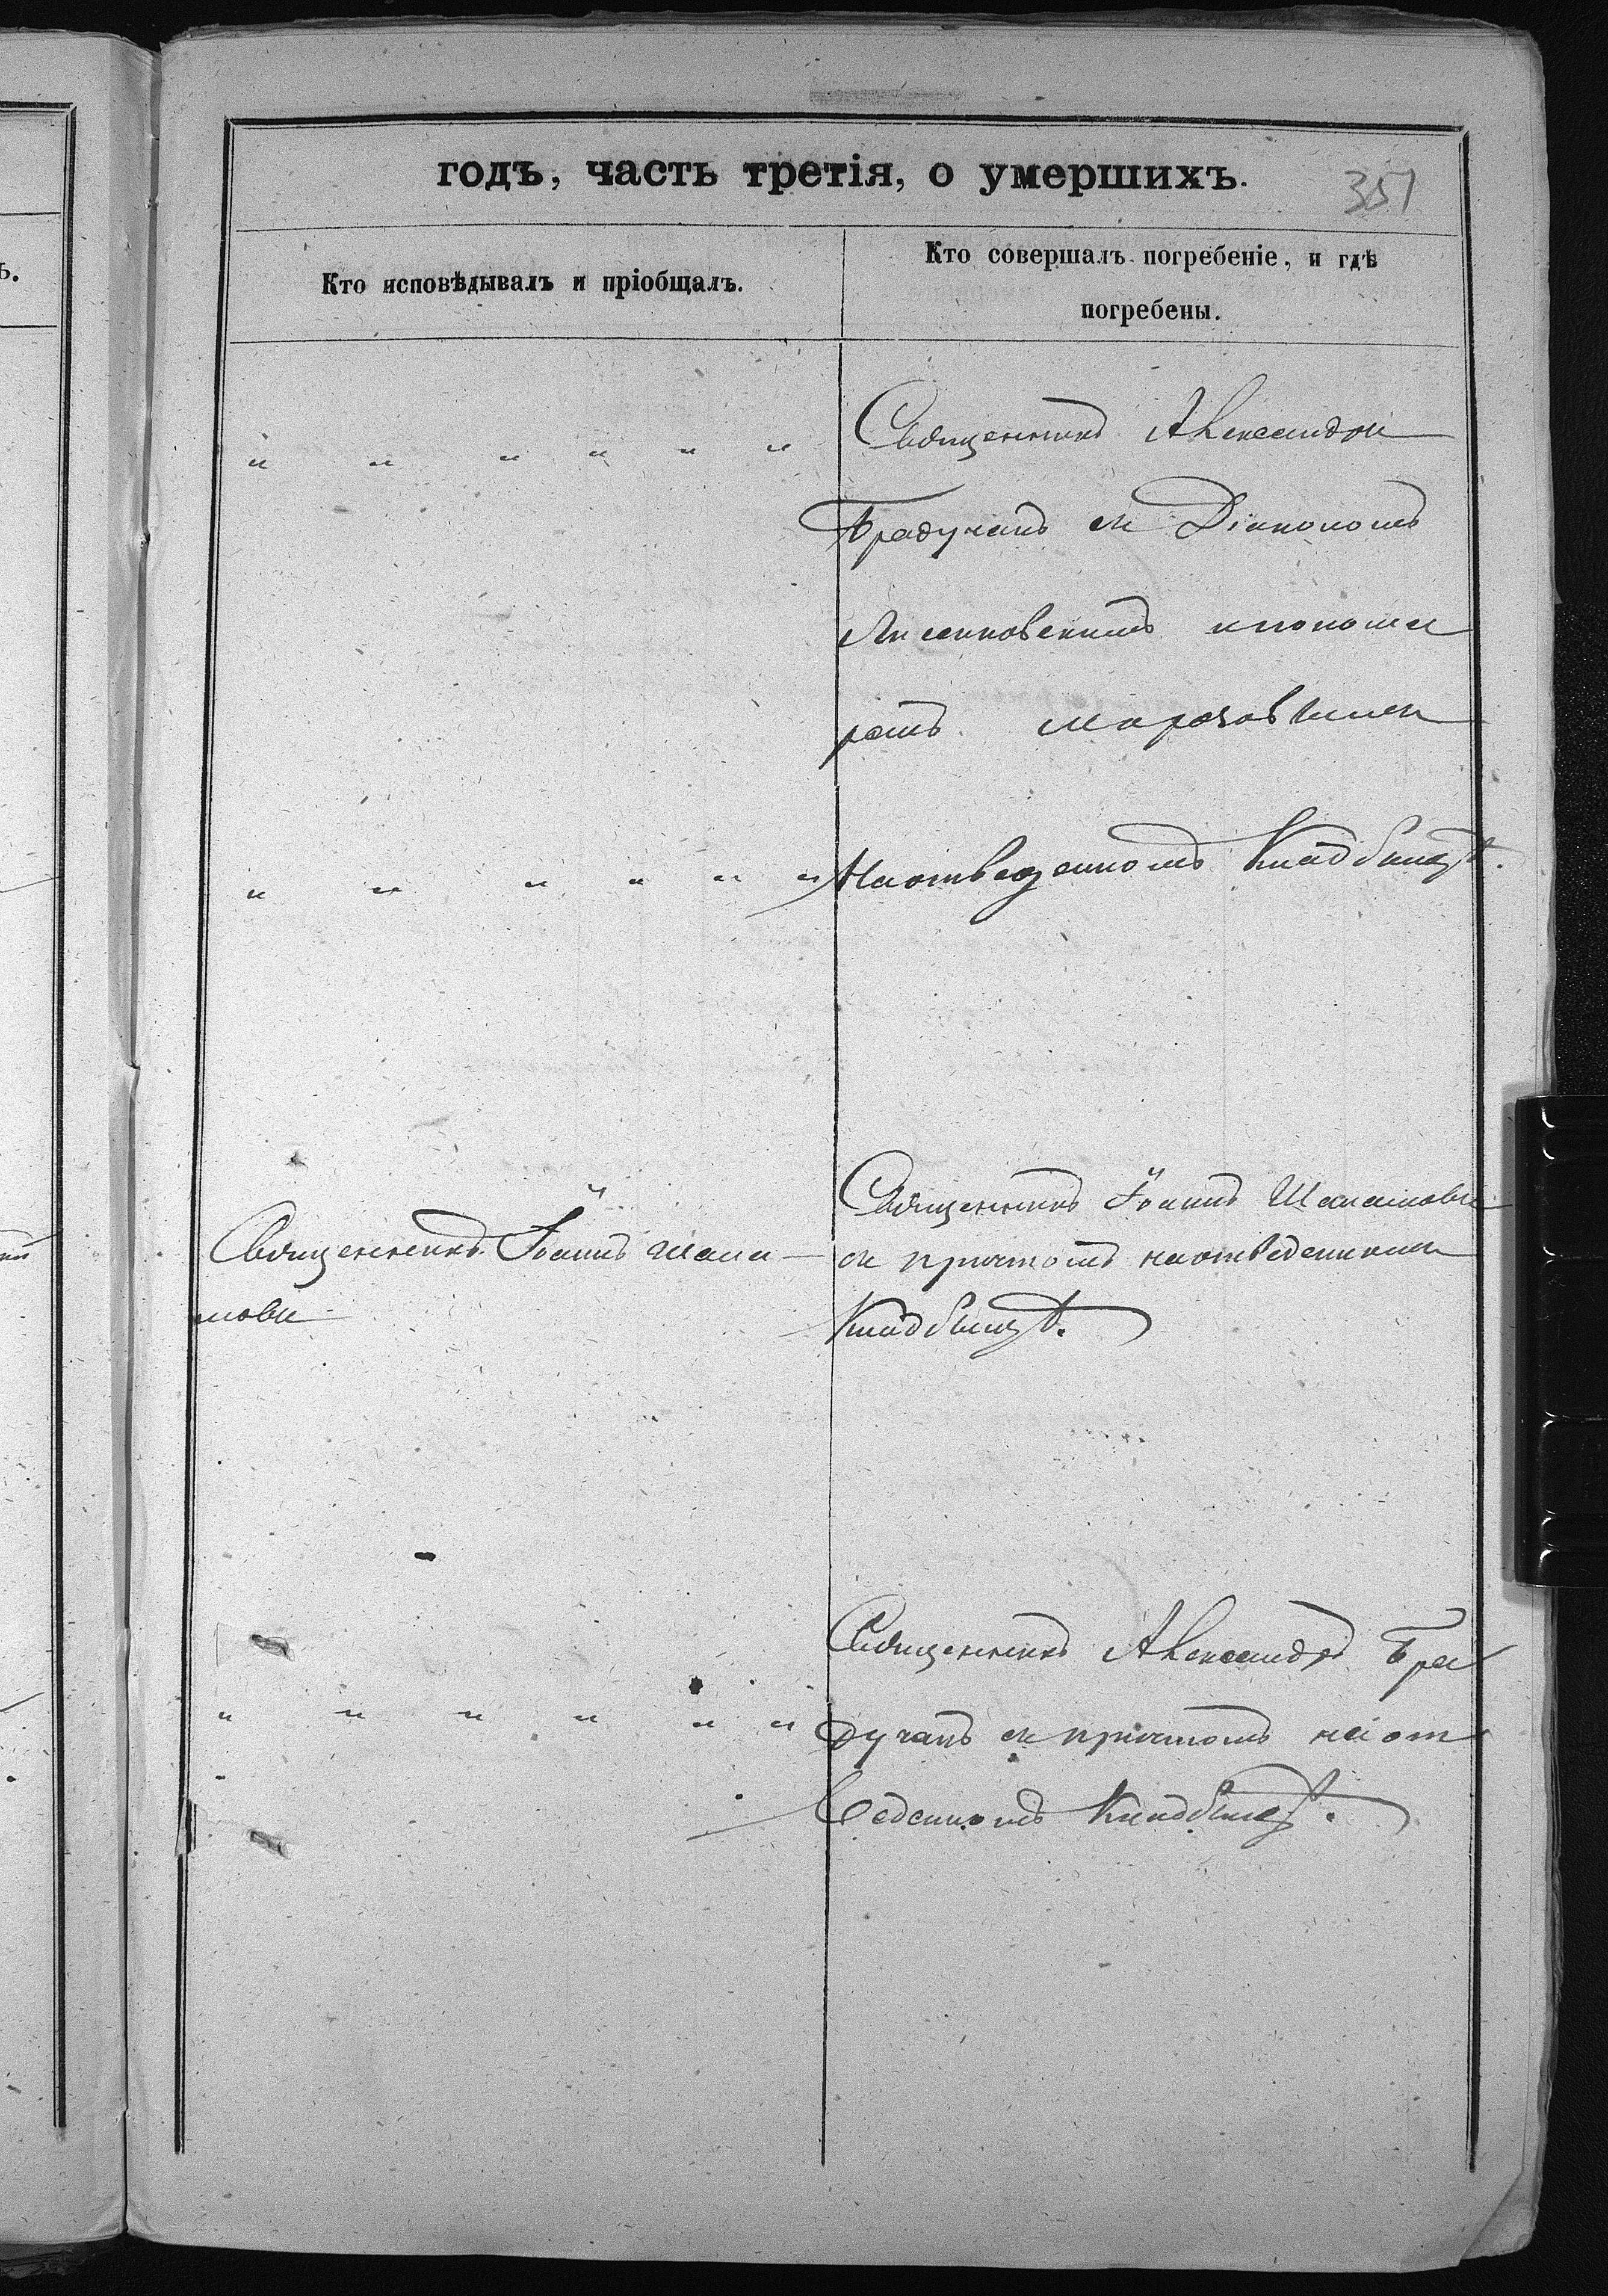 годъ, часть третія, о умершихъ.
351
Кто исповѣдывалъ и пріобщалъ.
Кто совершалъ погребеніе, и гдѣ
погребены.
" " " " " "
Священникъ Александръ
Брадучанъ съ Діакономъ
Лисаковскимъ и понома
ремъ
" " " " " "
На отведенномъ Кладбищѣ.
Священникъ Іоаннъ Шала
мовъ
Священникъ Іоаннъ Шаламовъ
съ причтомъ на отведенномъ
Кладбищѣ.
Священникъ Александръ Бра
" " " " " "
дучанъ съ причтомъ на от
веденномъ Кладбищѣ.